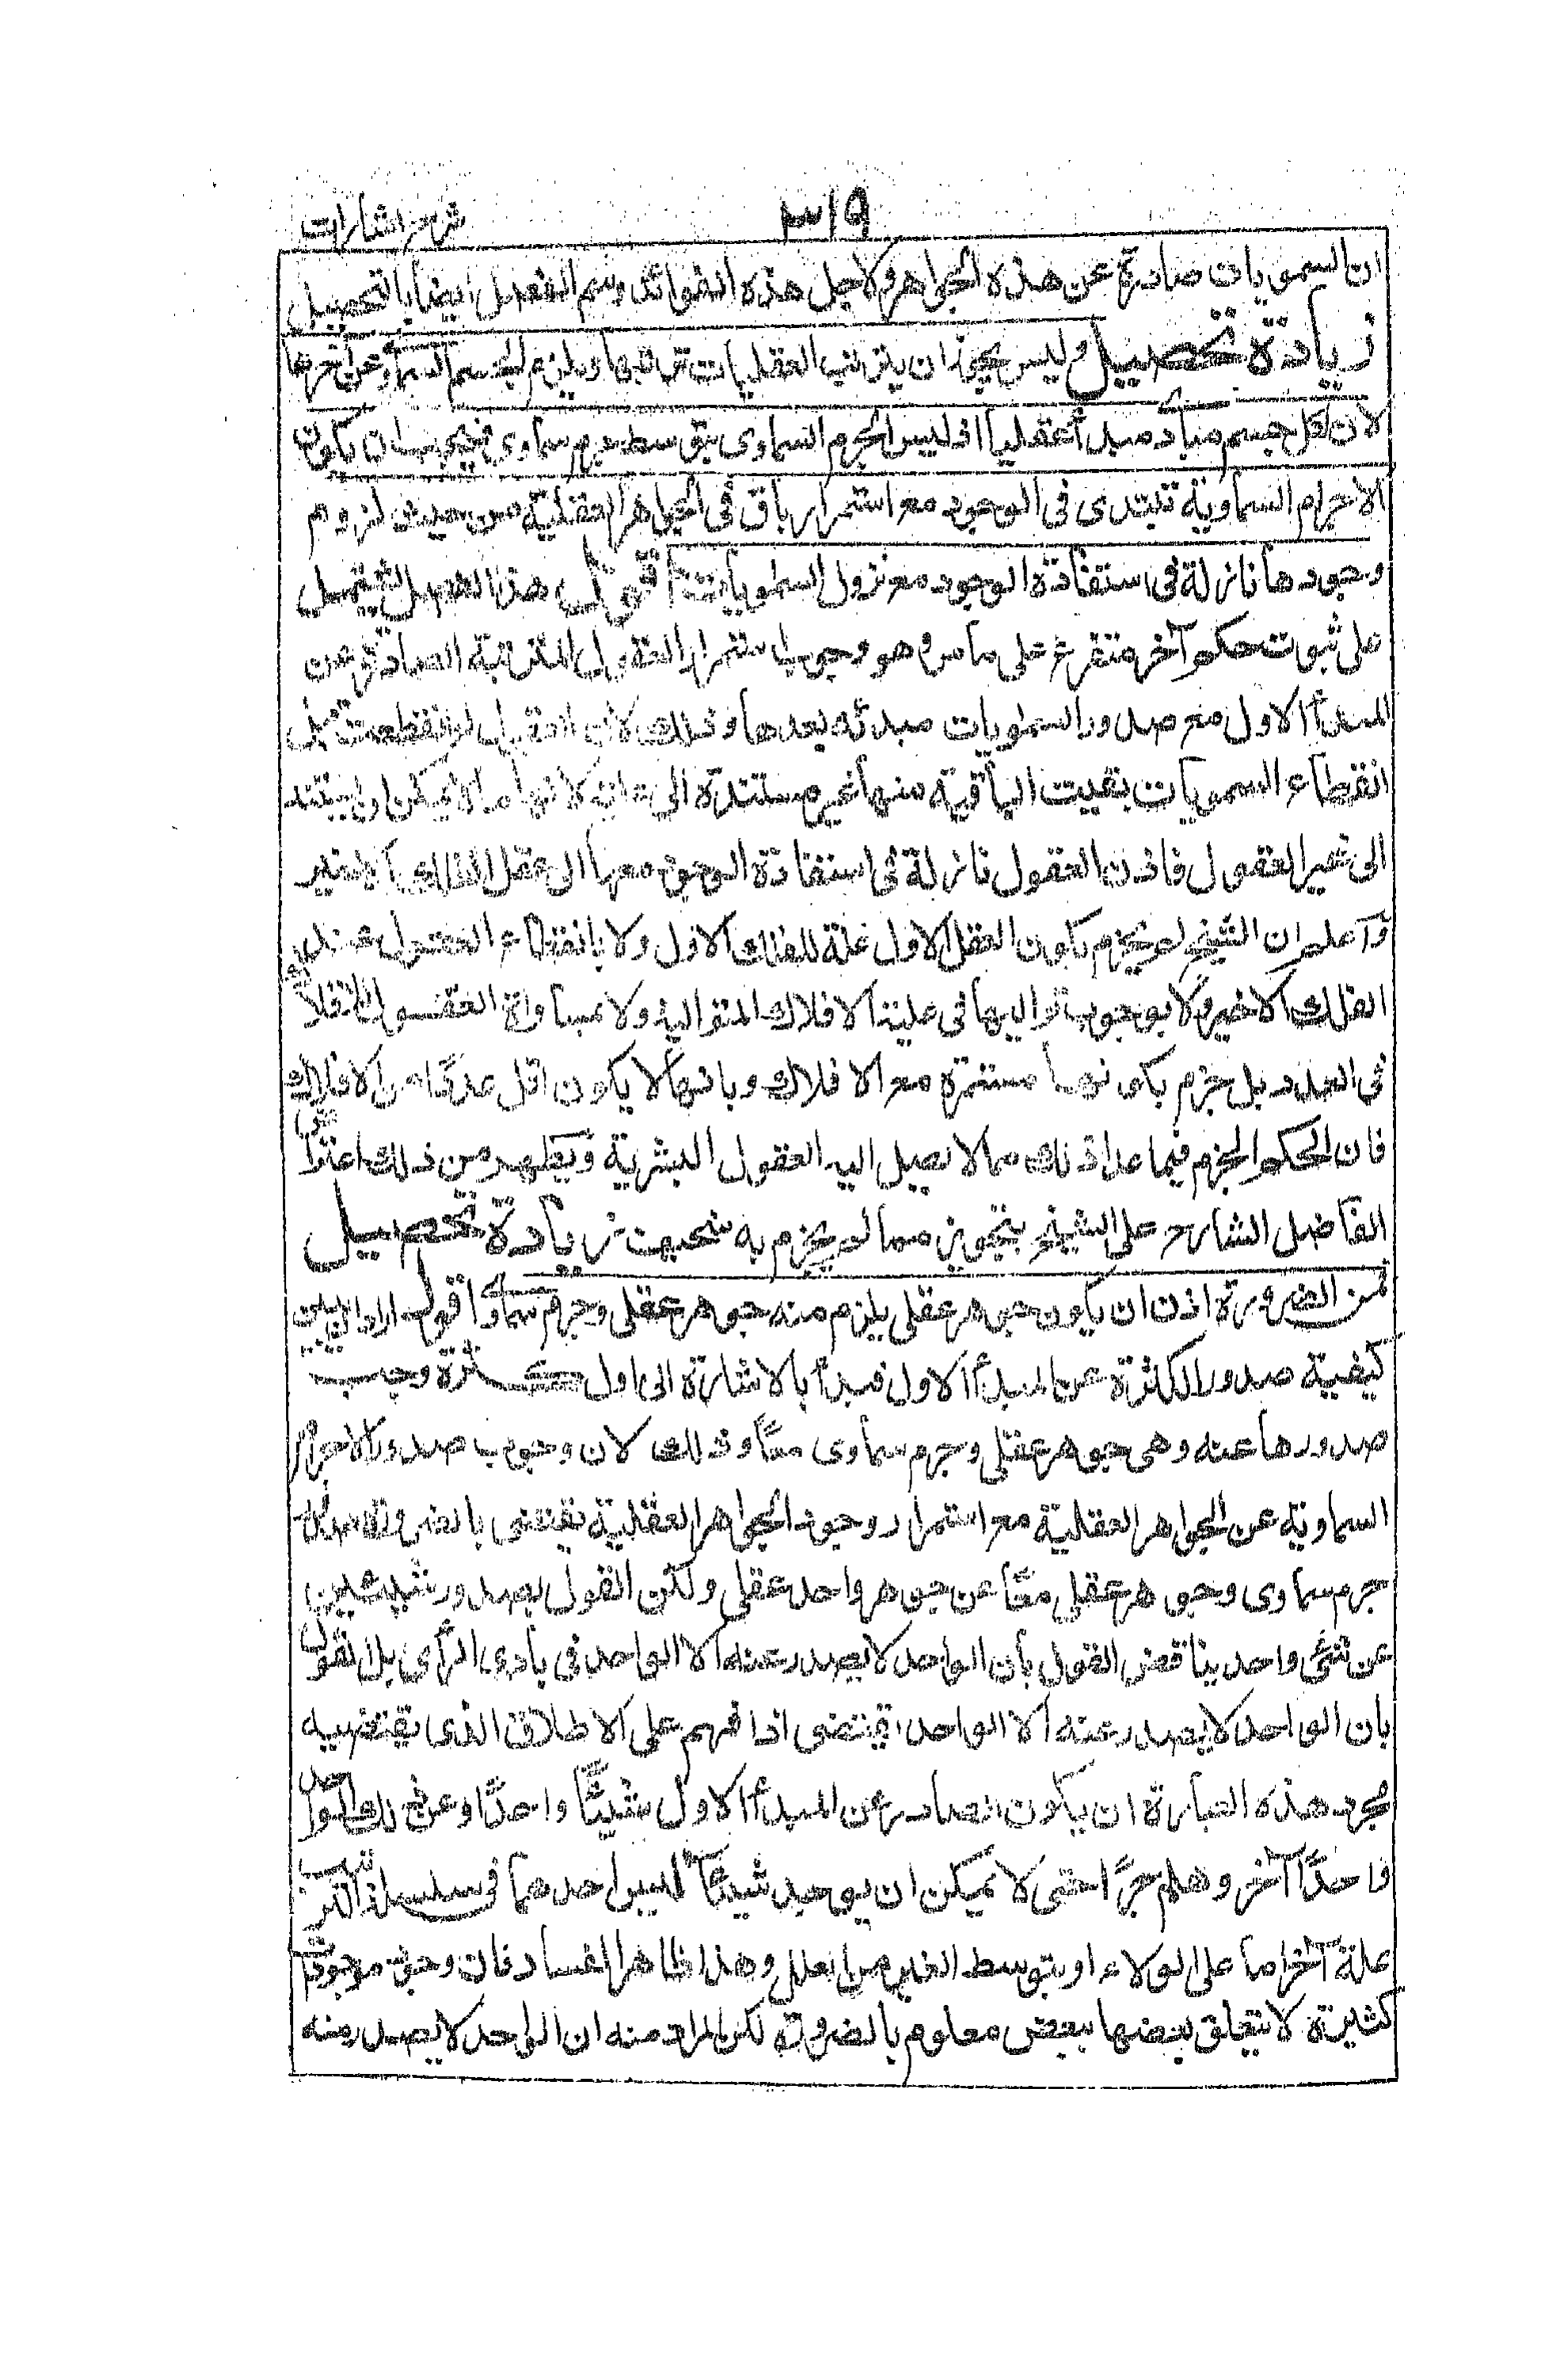 ٣١٩
شرح اشارات
ان السمويات صادرة عن هذه الجواهر ولاجل هذه الفوائد وسم الفصل ايضا بالتحصيل
زيادة تحصيل وليس يجوز ان يترتب العقليات ترتيبها ويلزم الجسم السماوى عن آخرها
لان لكل جسم سماوى مبدأ عقليا اذ ليس الجرم السماوى بتوسط جرم سماوى فيجب ان يكون
الاجرام السماوية تبتدى فى الوجود مع استمرار باق فى الجواهر العقلية من حيث لزوم
وجودها نازلة فى استفادة الوجود مع نزول السماويات اقول هذا الفصل يشتمل
على ثبوت حكم آخر متفرع على ما مر وهو وجوب استمرار العقول المترتبة الصادرة عن
المبدأ الاول مع صدور السماويات مبدئه بعدها وذلك لان العقول لو انقطعت قبل
انقطاع السمويات بقيت الباقية منها غير مستندة الى علة لانها لا يمكن ان يستند
الى غير العقول فاذن العقول نازلة فى استفادة الوجود معها الى عقل الفلك الاخير
وآعلم ان الشيخ لم يجزم بكون العقل الاول علة للفلك الاول ولا بانقطاع العقول عند
الفلك الاخير ولا بوجوب تواليها فى علية الافلاك المتوالية ولا بمساواة العقول للافلاك
فى العدد بل جزم بكونها مستمرة مع الافلاك وبانها لا يكون اقل عددًا من الافلاك
فان الحكم الجزم فيما عدا ذلك مما لا يصل اليه العقول البشرية ويظهر من ذلك اعتراض
الفاضل الشارح على الشيخ بتجويز مما لم يجزم به سخيف زيادة تحصيل
فمن الضرورة اذن ان يكون جوهر عقلى يلزم منه جوهر عقلى وجرم سماوى اقول اراد ان يبين
كيفية صدور الكثرة عن المبدأ الاول فبدأ بالاشارة الى اول كثرة وجب
صدورها عنه وهى جوهر عقلى وجرم سماوى معًا وذلك لان وجوب صدور الاجرام
السماوية عن الجواهر العقلية مع استمرار وجود الجواهر العقلية يقتضى بالضرورة صدور
جرم سماوى وجوهر عقلى معًا عن جوهر واحد عقلى ولكن القول بصدور شيئين
عن شئ واحد يناقض القول بأن الواحد لا يصدر عنه الا الواحد فى بادى الرأى بل القول
بان الواحد لا يصدر عنه الا الواحد يقتضى اذا فهم على الاطلاق الذى يقتضيه
مجرد هذه العبارة ان يكون الصادر عن المبدأ الاول شيئًا واحدًا وعن ذلك الواحد
واحدًا آخر وهلم جرًا حتى لا يمكن ان يوجد شيئان ليس احدهما فى سلسلة الترتيب
علة آخر اما على الولاء او بتوسط الغير من العلل وهذا ظاهر الفساد فان وجود موجودات
كثيرة لا يتعلق بعضها ببعض معلوم بالضرورة لكن المراد منه ان الواحد لا يصدر منه